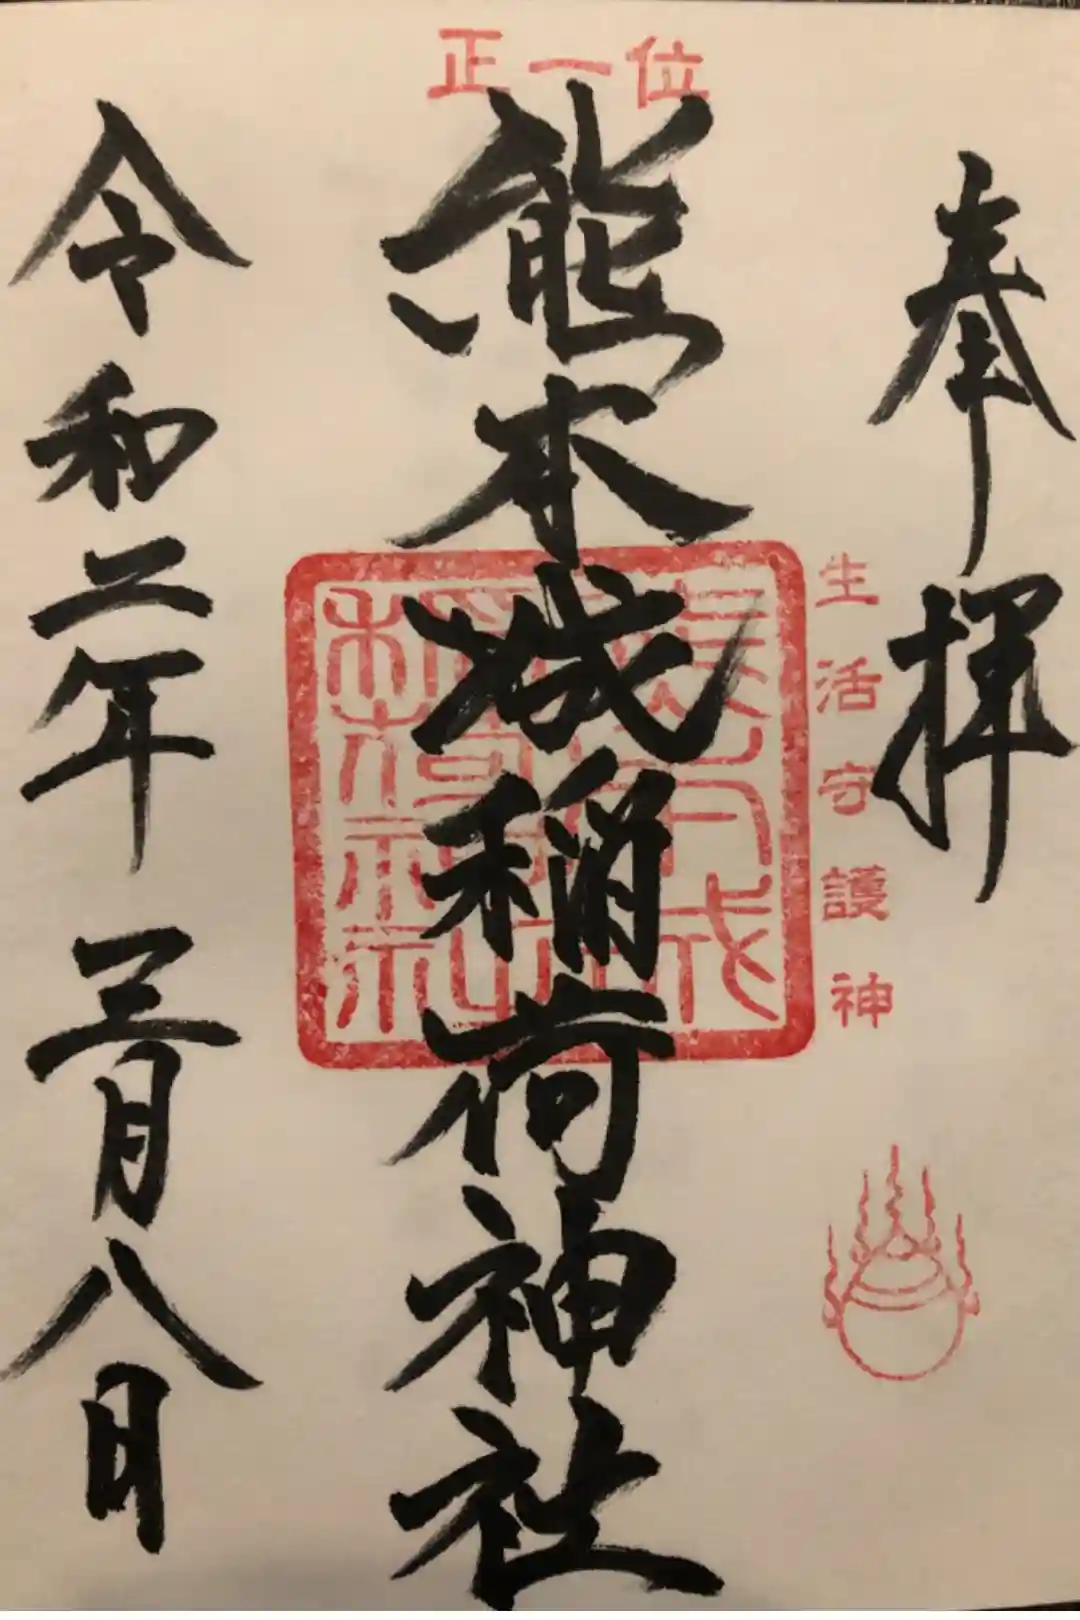 正一位
奉拝
生活守護神
熊本城稲荷神社
令和二年 三月八日